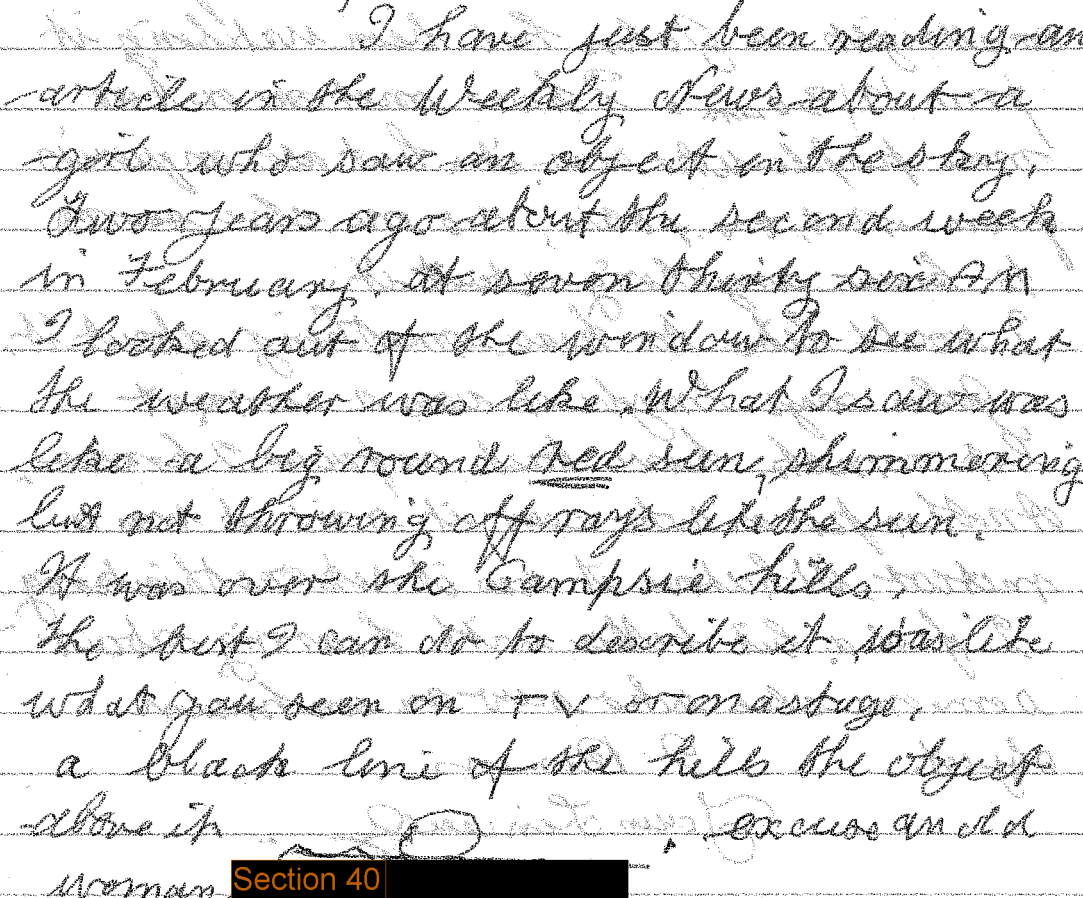 I have just been reading an
article in the Weekly News about a
girl who saw an object in the sky.
Two years ago about the second week
in February. at seven thirty six AM
I looked out of the window to see what
the weather was like. What I saw was
like a big round red sun, shimmering
but not throwing off rays like the sun.
It was over the Campsie hills.
The best I can do to describe it, was like
what you seen on TV or on a stage.
a black line of the hills the object
above it. excuse an old
woman
Section 40